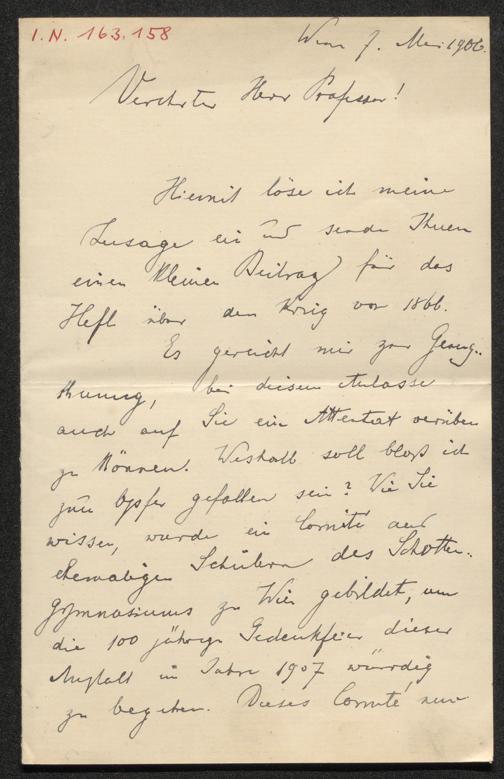 I.N. 163.158
Wien 7. Mai 1906.
Verehrter Herr Professor!
Hiemit löse ich meine
Zusage ein und sende Ihnen
einen kleinen Beitrag für das
Heft über den Krieg von 1866.
Es gereicht mir zur Genug-
thuung, bei diesem Anlasse
auch auf Sie ein Attentat verüben
zu können. Weshalb soll bloß ich
zum Opfer gefallen sein? Wie Sie
wissen, wurde ein Comité aus
ehemaligen Schülern des Schotten-
gymnasiums zu Wien gebildet, um
die 100 jährige Gedenkfeier dieser
Anstalt im Jahre 1907 würdig
zu begehen. Dieses Comité nun